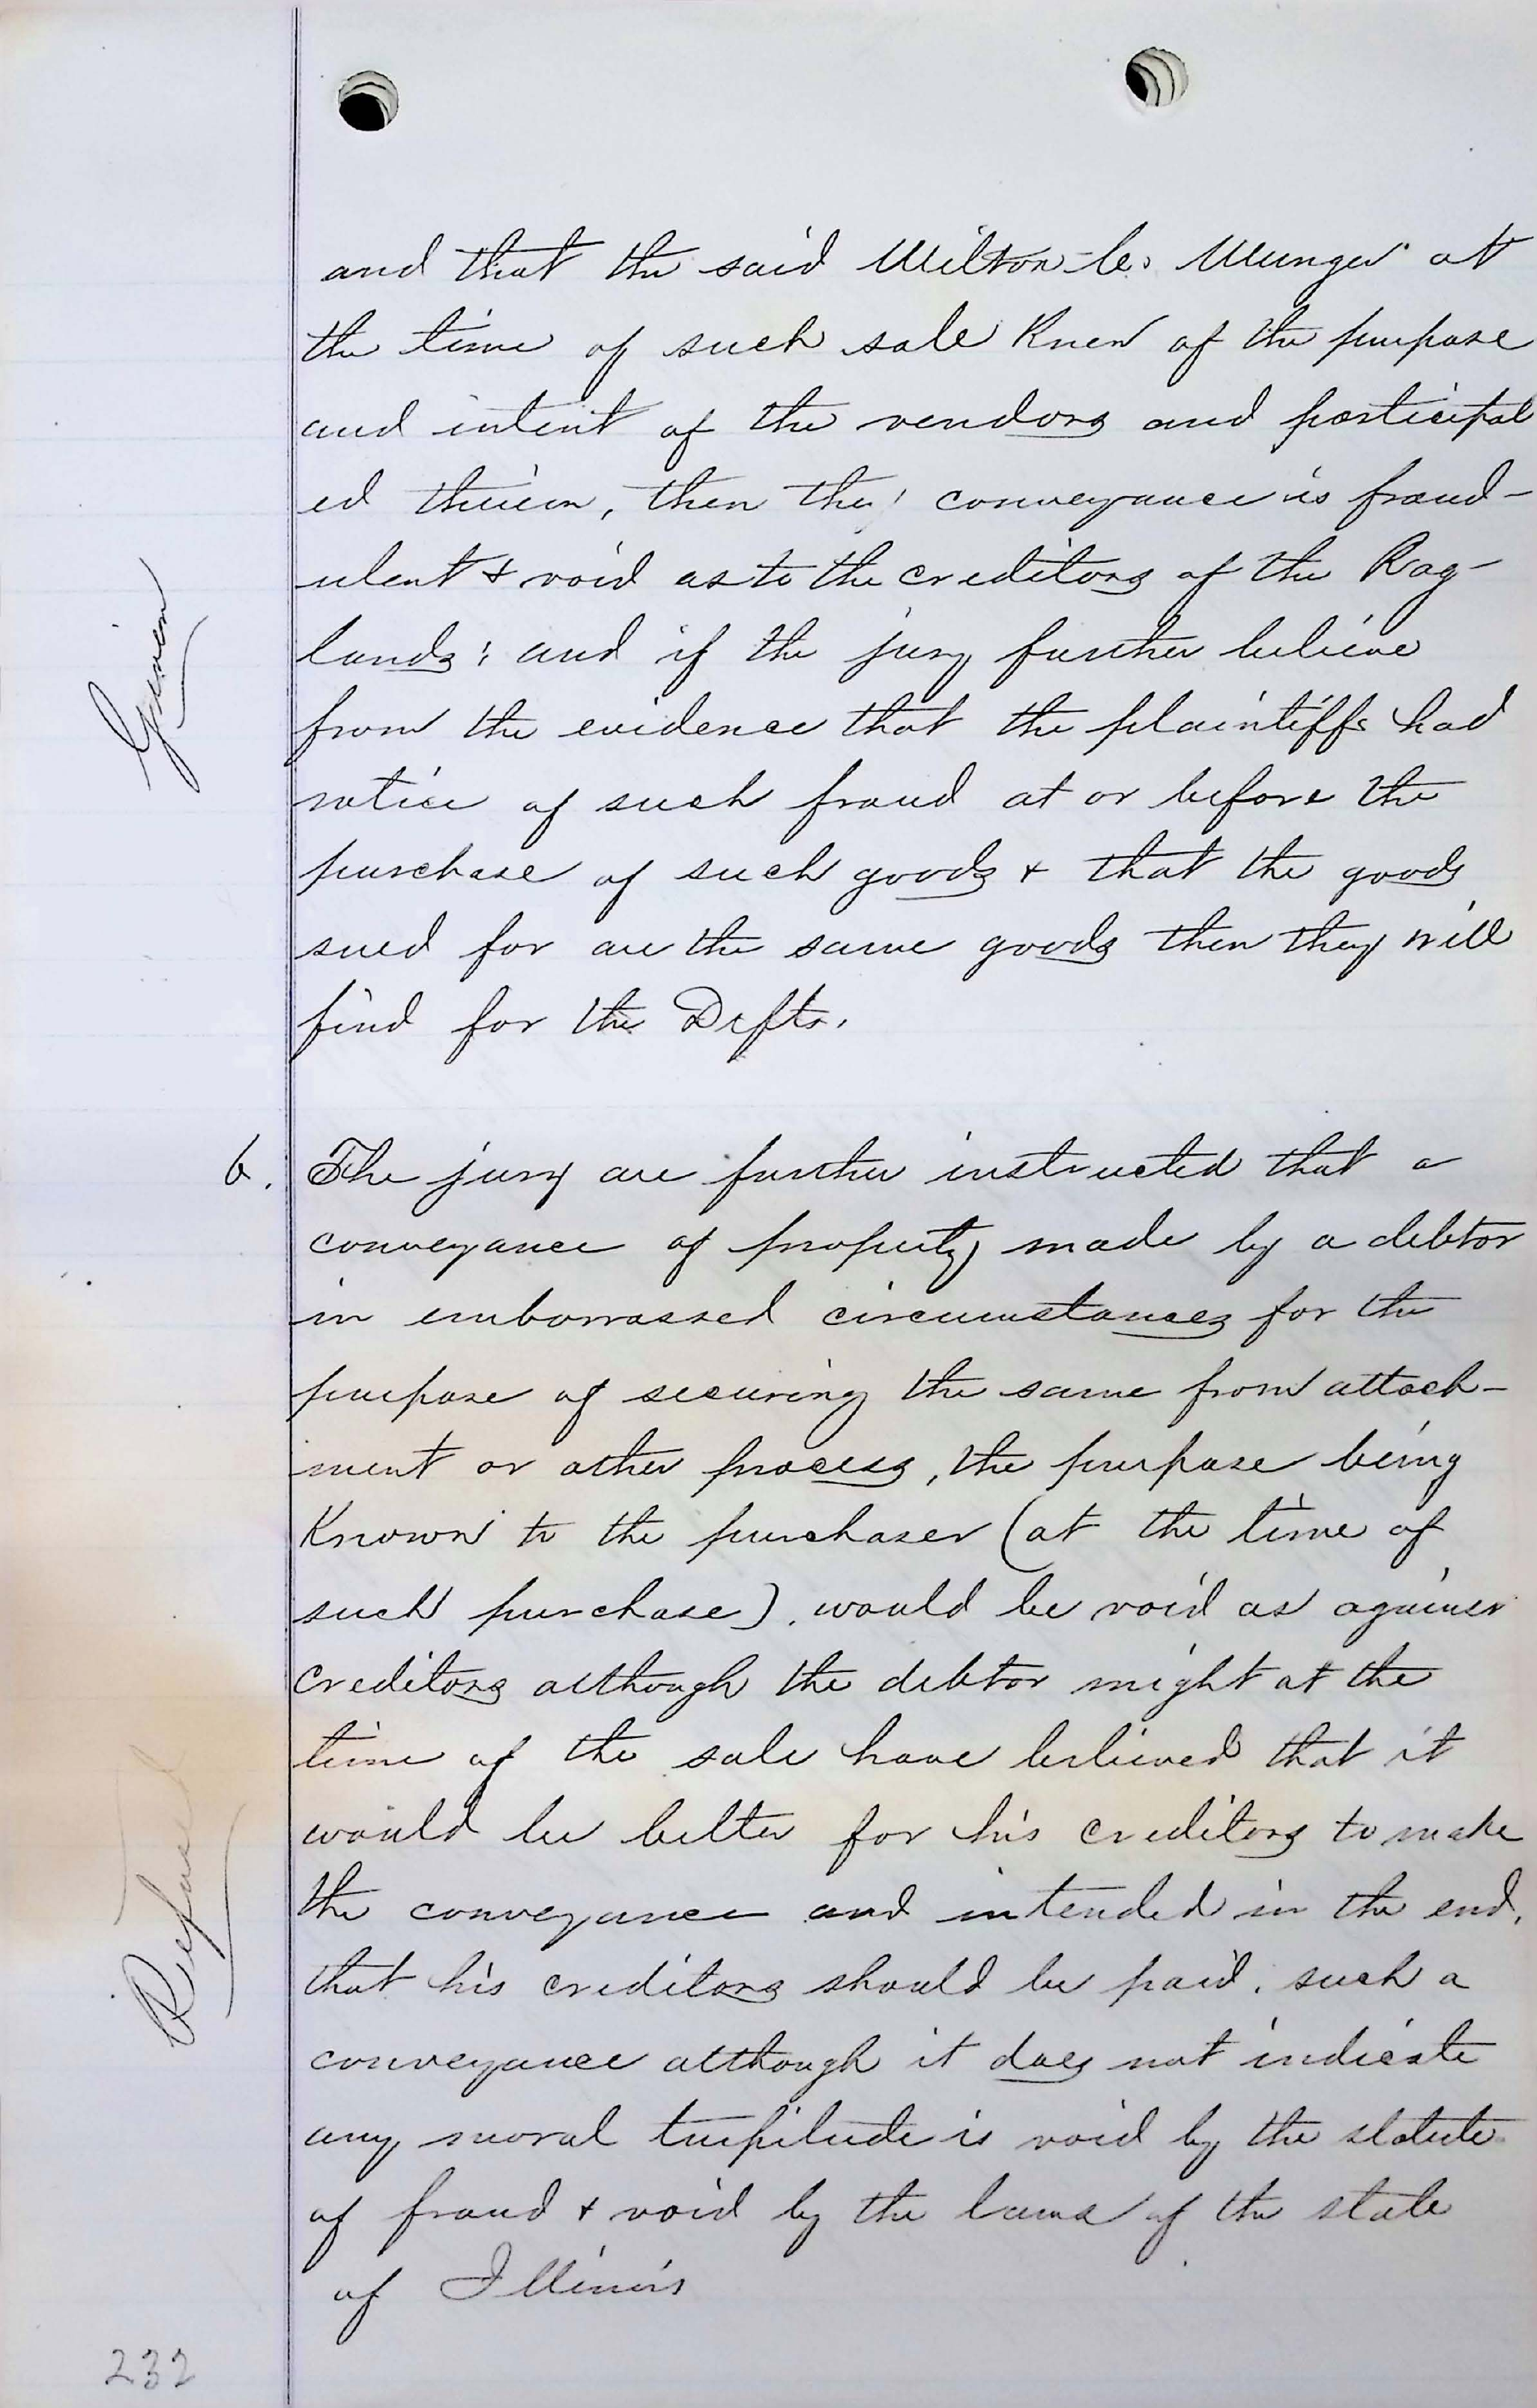 and that the said Milton C. Munger at
the time of such sale knew of the purpose
and intent of the vendors and participat
ed therein, then the conveyance is fraud-
ulent & void as to the creditors of the Rag-
lands; and if the jury further believe
Given
from the evidence that the plaintiffs had
notice of such fraud at or before the
purchase of such goods & that the goods
sued for are the same goods then they will
find for the Defts.
6. The jury are further instructed that a
conveyance of property made by a debtor
in embarrassed circumstances for the
purpose of securing the same from attach-
ment or other process, the purpose being
Known to the purchaser (at the time of
such purchase), would be void as against
creditors although the debtor might at the
time of the sale have believed that it
would be better for his creditors to make
the conveyance and intended in the end,
Refused
that his creditors should be paid. such a
conveyance although it does not indicate
any moral turpitude is void by the statute
of fraud & void by the laws of the state
of Illinois
232